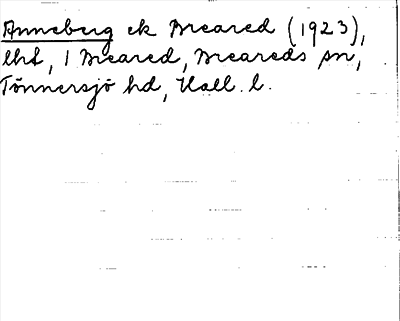 Anneberg ek Breared (1923),
lht, 1 Breared, Breareds sn,
Tönnersjö hd, Hall. l.